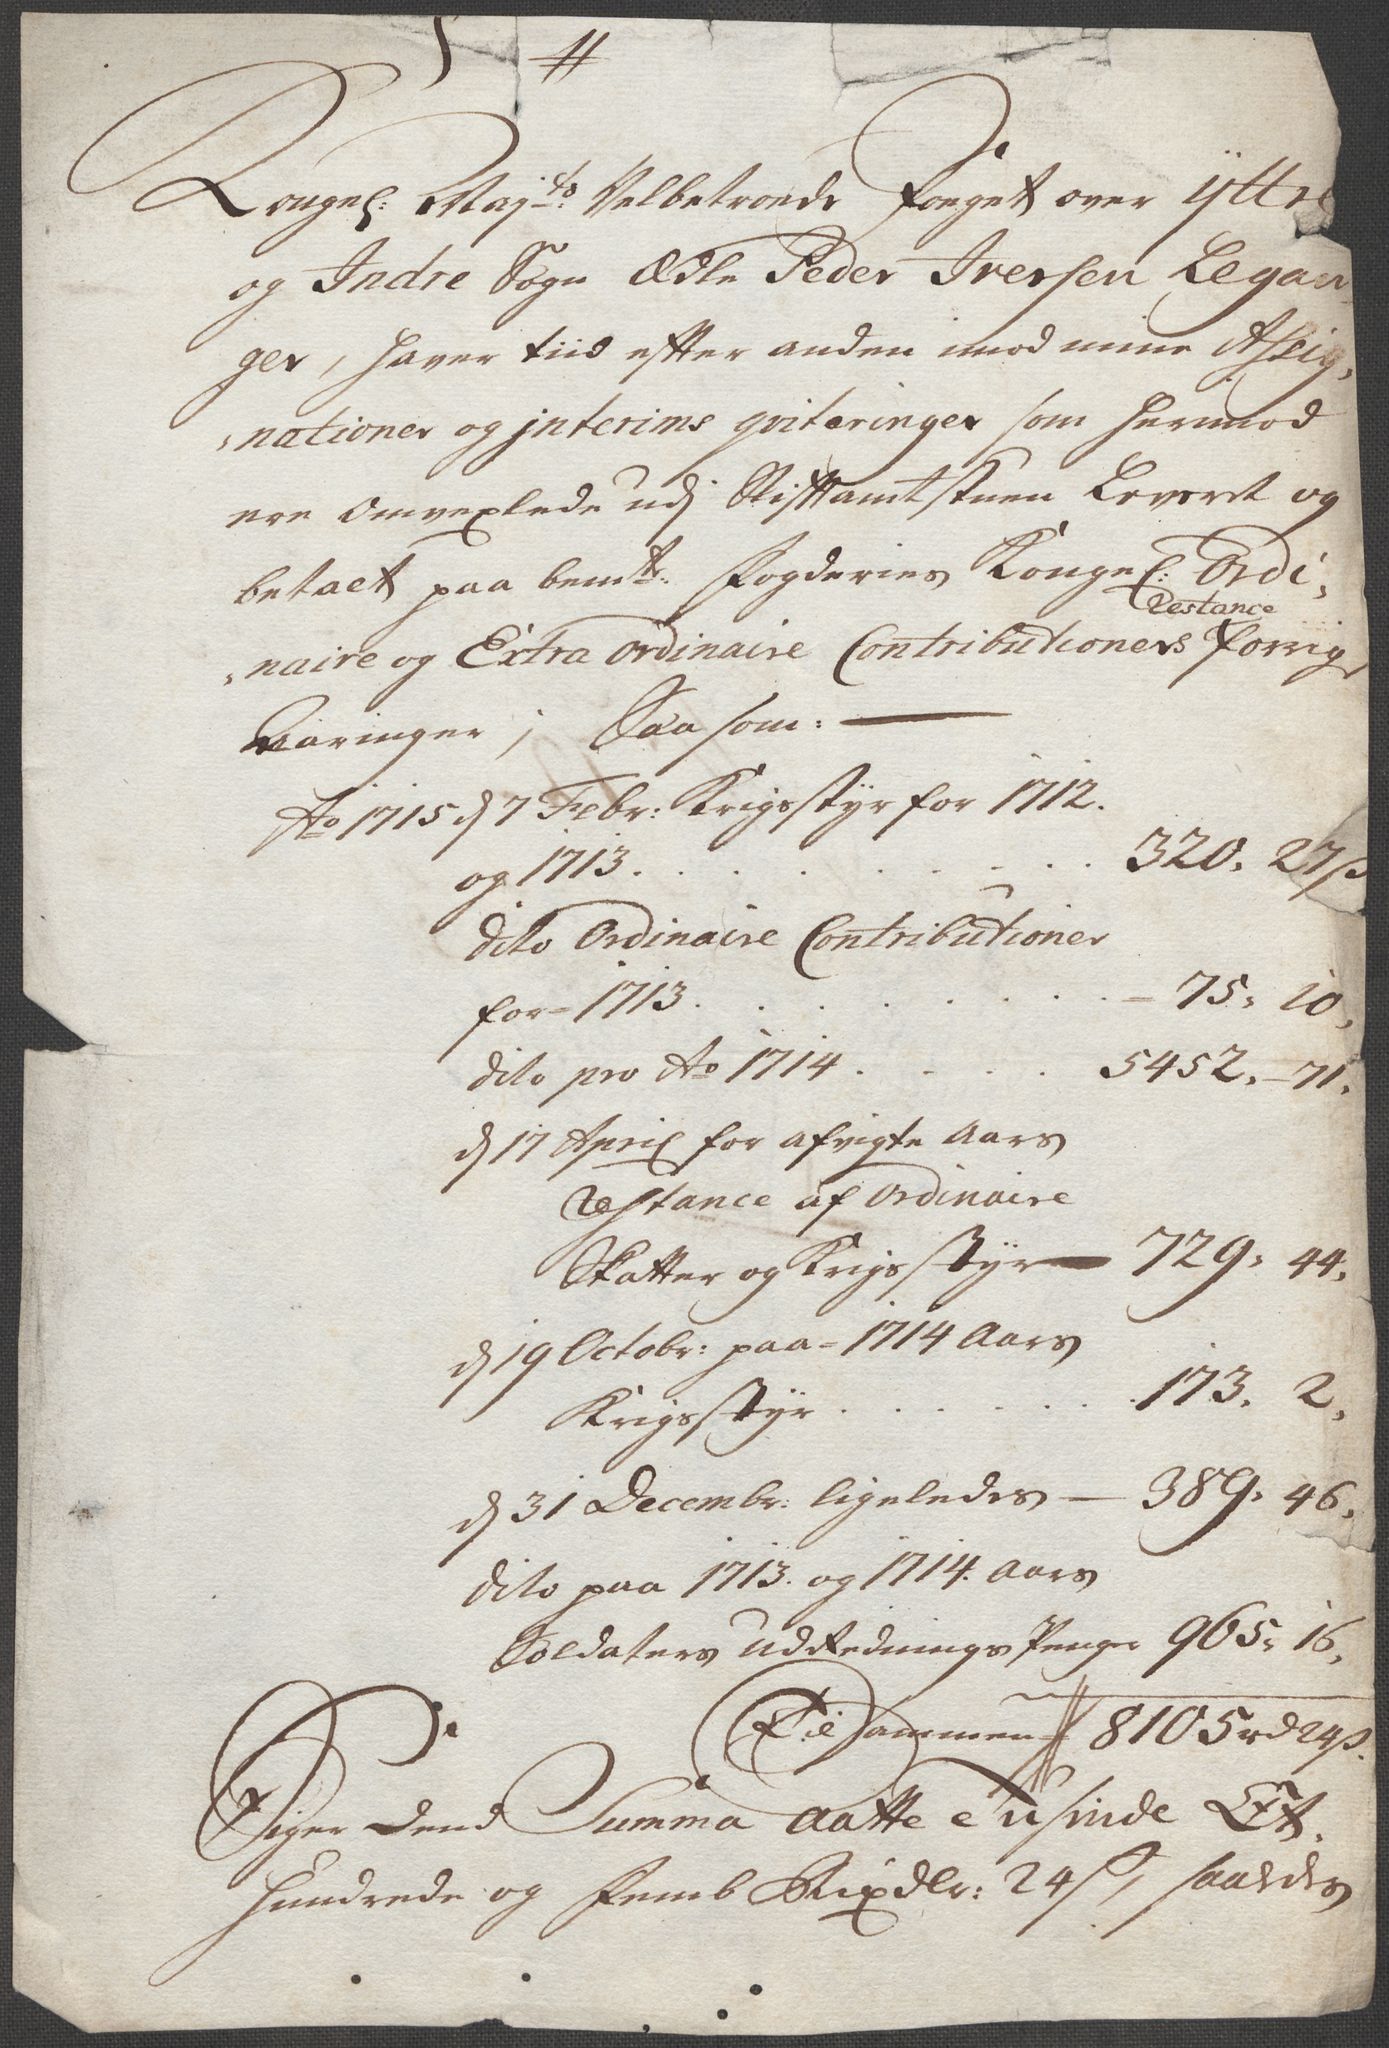 Kongel: Maj:ts Velbetroede Fouget over Ÿttre
og Indre Sogn Ædle Peder Iversen Legan-
ger, haver tiid efter anden imod mine Assig-
nationer og jnterims qviteringer som hermed
ere omvexlede udj Stiftamtstuen Leveret og
betalt paa bemte: Fogderies Kongel: Ordi-
naire og Extra Ordinaire Contributioners Restance forrige
Aaringer, Saasom:
Ao 1715 d 7 Febr: Krigsstÿr for 1712.
og 1713. . . . . . . . . 320. 27 ß
dito Ordinaire Contributioner
for 1713. . . . . . . . - 75. 10.
dito pro Ao 1714 . . . . 5452. 71.
d 17 April for afvigte Aars
Restance af Ordinaire
Skatter og Krigsstÿr 729. 44.
d 19 Octobr: paa 1714 Aars
Krigsstÿr . . . . . . 173. 2.
d 31 Decembr: ligeledes - 389. 46.
dito paa 1713. og 1714. Aars
Soldaters Udrednings Penger 965. 16.
Tilsammen 8105 rd 24 ß.
Siger Dend Summa Aatte Tusinde Et
Hundrede og Femb Rixdlr: 24 ß, saaledes